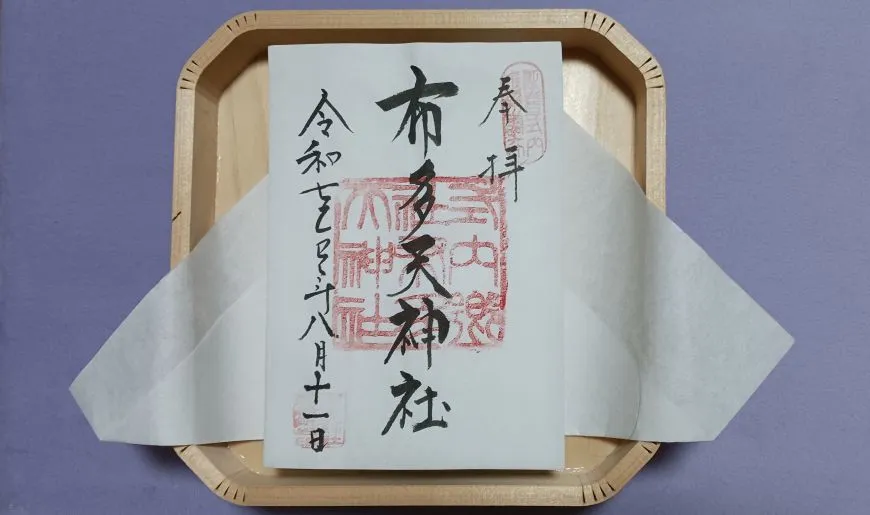 奉拝
布多天神社
令和七乙巳年八月十一日
式内郷
社布多
天神社